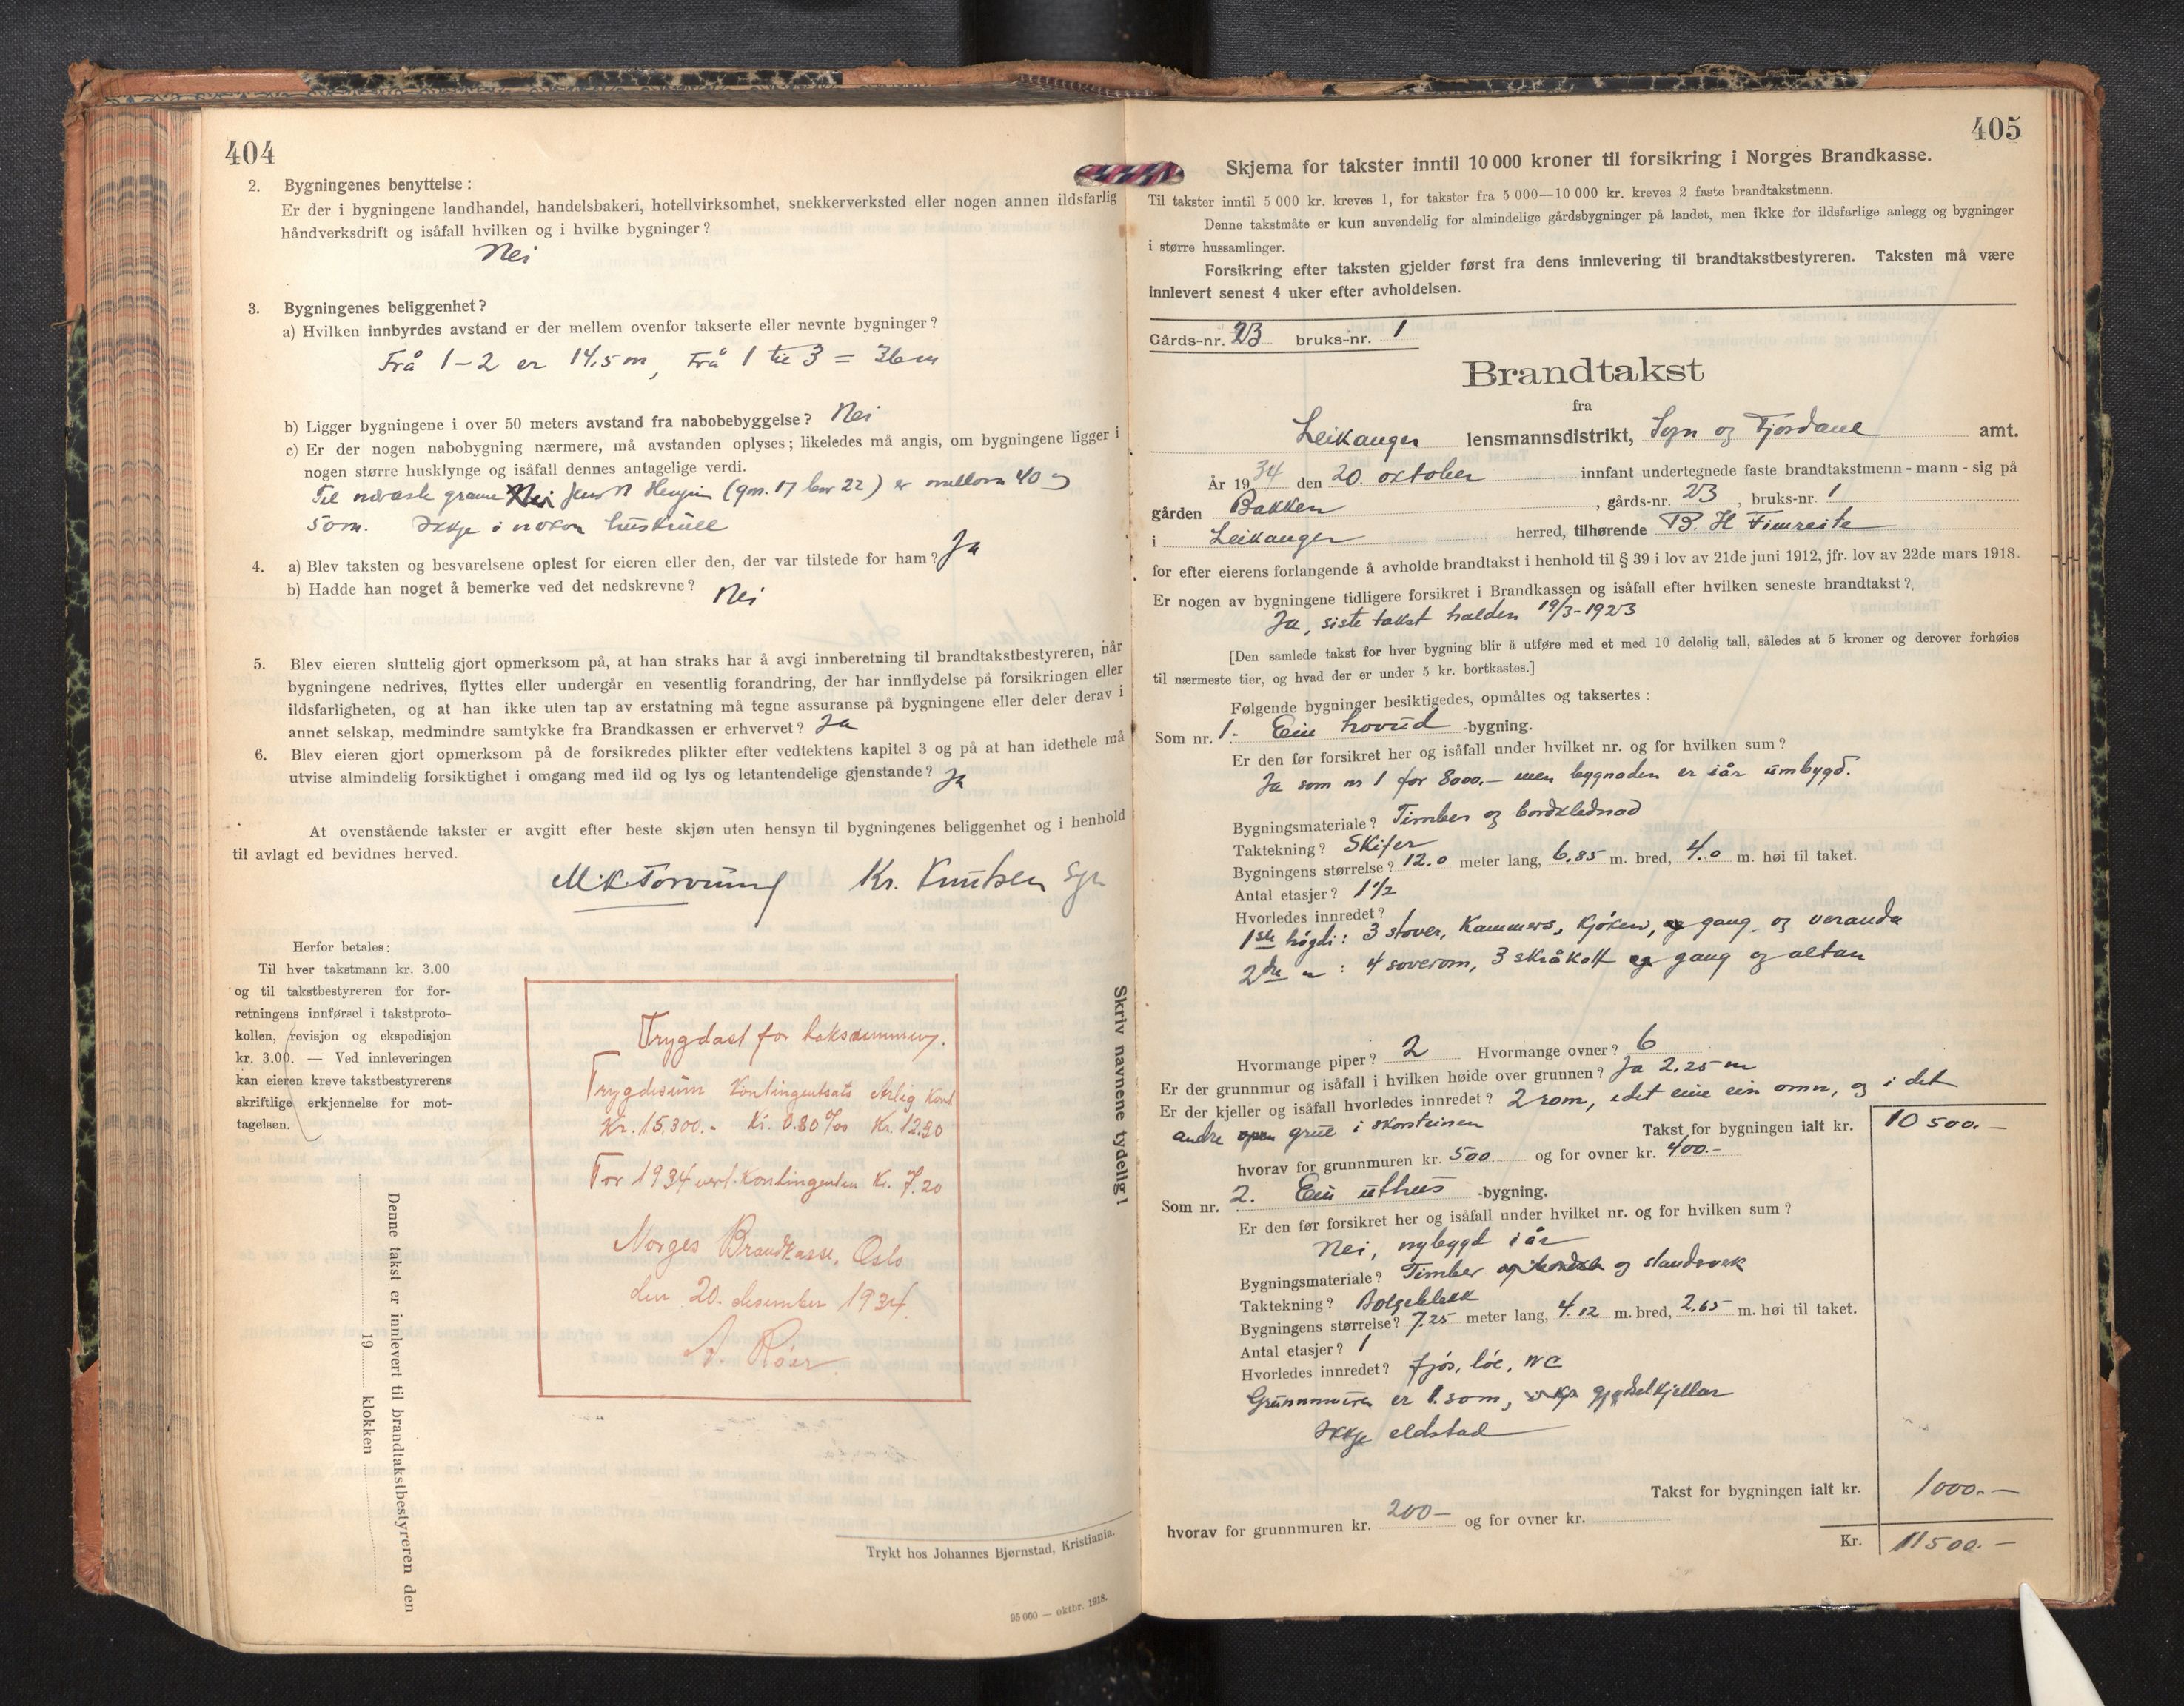 404
2. Bygningenes benyttelse:
Er der i bygningene landhandel, handelsbakeri, hotellvirksomhet, snekkerverksted eller nogen annen ildsfarlig
håndverksdrift og isåfall hvilken og i hvilke bygninger?
Nei
3. Bygningenes beliggenhet?
a) Hvilken innbyrdes avstand er der mellem ovenfor takserte eller nevnte bygninger?
Frå 1-2 er 14,5 m, Frå 1 til 3 = 36 m
b) Ligger bygningene i over 50 meters avstand fra nabobebyggelse? Nei
c) Er der nogen nabobygning nærmere, må avstanden oplyses; likeledes må angis, om bygningene ligger i
nogen større husklynge og isåfall dennes antagelige verdi.
Til næraste granne Jens N (gnr. 17 bnr 22) er mellom 40 og
50 m. Ikkje i nokon
4. a) Blev taksten og besvarelsene oplest for eieren eller den, der var tilstede for ham? Ja
b) Hadde han noget å bemerke ved det nedskrevne? Nei
5. Blev eieren sluttelig gjort opmerksom på, at han straks har å avgi innberetning til brandtakstbestyreren, når
bygningene nedrives, flyttes eller undergår en vesentlig forandring, der har innflydelse på forsikringen eller
ildsfarligheten, og at han ikke uten tap av erstatning må tegne assuranse på bygningene eller deler derav i
annet selskap, medmindre samtykke fra Brandkassen er erhvervet? Ja
6. Blev eieren gjort opmerksom på de forsikredes plikter efter vedtektens kapitel 3 og på at han idethele må
utvise almindelig forsiktighet i omgang med ild og lys og letantendelige gjenstande? Ja
At ovenstående takster er avgitt efter beste skjøn uten hensyn til bygningenes beliggenhet og i henhold
til avlagt ed bevidnes herved.
Kr. Knutsen
Herfor betales:
Til hver takstmann kr. 3.00
og til takstbestyreren for for-
retningens innførsel i takstproto-
kollen, revisjon og ekspedisjon
kr. 3.00. — Ved innleveringen
kan eieren kreve takstbestyrerens
skriftlige erkjennelse for mot-
tagelsen.
Trygdast for taksummen.
Trygdesum Kontingentsats Årlig Kont
Kr. 15.300.- Kr. 0.80 ‰ Kr. 12.30
For 1934 vert kontingenten Kr. 7.20
Norges Brandkasse, Oslo
den 20. desember 1934.
Denne takst er innlevert til brandtakstbestyreren den
19 klokken
Skriv navnene tydelig!
Trykt hos Johannes Bjørnstad, Kristiania.
95 000 — oktbr. 1918.
405
Skjema for takster inntil 10 000 kroner til forsikring i Norges Brandkasse.
Til takster inntil 5 000 kr. kreves 1, for takster fra 5 000—10 000 kr. kreves 2 faste brandtakstmenn.
Denne takstmåte er kun anvendelig for almindelige gårdsbygninger på landet, men ikke for ildsfarlige anlegg og bygninger
i større hussamlinger.
Forsikring efter taksten gjelder først fra dens innlevering til brandtakstbestyreren. Taksten må være
innlevert senest 4 uker efter avholdelsen.
Gårds-nr. 23 bruks-nr. 1
Brandtakst
fra
Leikanger lensmannsdistrikt, Sogn og Fjordane amt.
År 1934 den 20. oktober innfant undertegnede faste brandtakstmenn - mann - sig på
gården Bakken, gårds-nr. 23, bruks-nr. 1
i Leikanger herred, tilhørende B. H Fimreite
for efter eierens forlangende å avholde brandtakst i henhold til § 39 i lov av 21de juni 1912, jfr. lov av 22de mars 1918.
Er nogen av bygningene tidligere forsikret i Brandkassen og isåfall efter hvilken seneste brandtakst?
Ja, siste takst halden 19/3-1923
[Den samlede takst for hver bygning blir å utføre med et med 10 delelig tall, således at 5 kroner og derover forhøies
til nærmeste tier, og hvad der er under 5 kr. bortkastes.]
Følgende bygninger besiktigedes, opmåltes og taksertes:
Som nr. 1.- Ein hovud -bygning.
Er den før forsikret her og isåfall under hvilket nr. og for hvilken sum?
Ja som nr 1 for 8000.- men bygnaden er iår umbygd.
Bygningsmateriale? Timber og bordklednad
Taktekning? Skifer
Bygningens størrelse? 12.0 meter lang, 6.85 m. bred, 4.0 m. høi til taket.
Antal etasjer? 1½
Hvorledes innredet?
1ste högdi: 3 stover, Kammers, Kjöken, gang og veranda
2dre " : 4 soverom, 3 skråkott gang og altan
Hvormange piper? 2 Hvormange ovner? 6
Er der grunnmur og isåfall i hvilken høide over grunnen? Ja 2.25 m
Er der kjeller og isåfall hvorledes innredet? 2 rom, idet eine ein omn, og i det
andre grue i skorsteinen Takst for bygningen ialt kr. 10 500.-
hvorav for grunnmuren kr. 500 og for ovner kr. 400.-
Som nr. 2. Ein uthus -bygning.
Er den før forsikret her og isåfall under hvilket nr. og for hvilken sum?
Nei, nybygd i år
Bygningsmateriale? Timber og standverk
Taktekning? Bolgeblekk
Bygningens størrelse? 7.25 meter lang, 4.12 m. bred, 2.65 m. høi til taket.
Antal etasjer? 1
Hvorledes innredet? fjös, löe, WC
Grunnmuren er 1.30 m, gjødselkjellar
Ikkje eldstad
Takst for bygningen ialt kr. 1000.-
hvorav for grunnmuren kr. 200- og for ovner kr.
Kr. 11500.-